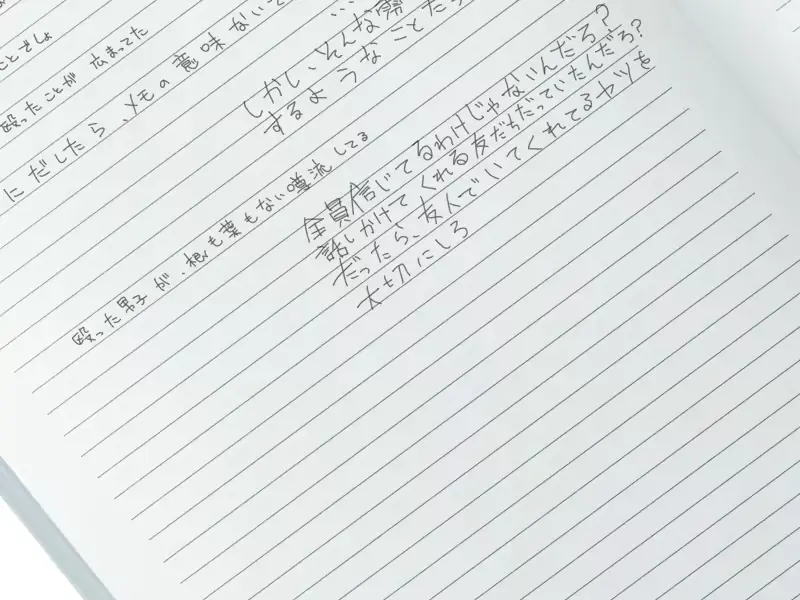 ことでしょ
殴ったことが 広まってた
にだしたら、メモの意味ないって
殴った男子が、根も葉もない噂流してる
しかし、そんな
するようなことたら
全員信じてるわけじゃないんだろ?
話しかけてくれる友だちだっていたんだろ?
だったら、友人でいてくれてるヤツを
大切にしろ